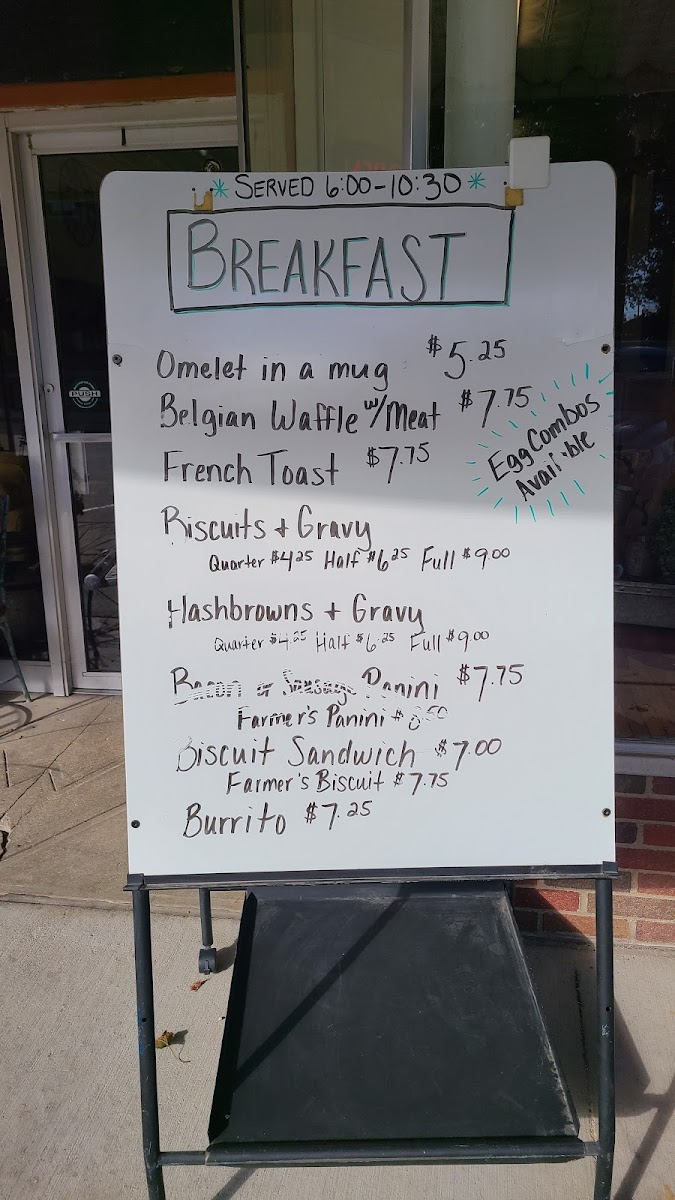 * SERVED 6:00-10:30 *
BREAKFAST
Omelet in a mug $5.25
Belgian Waffle w/Meat $7.75
Egg Combos
French Toast $7.75
Biscuits + Gravy
Quarter $4.25 Half $6.25 Full $9.00
Hashbrowns + Gravy
Quarter $4.25 Half $6.25 Full $9.00
Bacon or Sausage Panini $7.75
Farmer's Panini $8.50
Biscuit Sandwich $7.00
Farmer's Biscuit $7.75
Burrito $7.25
PUSH